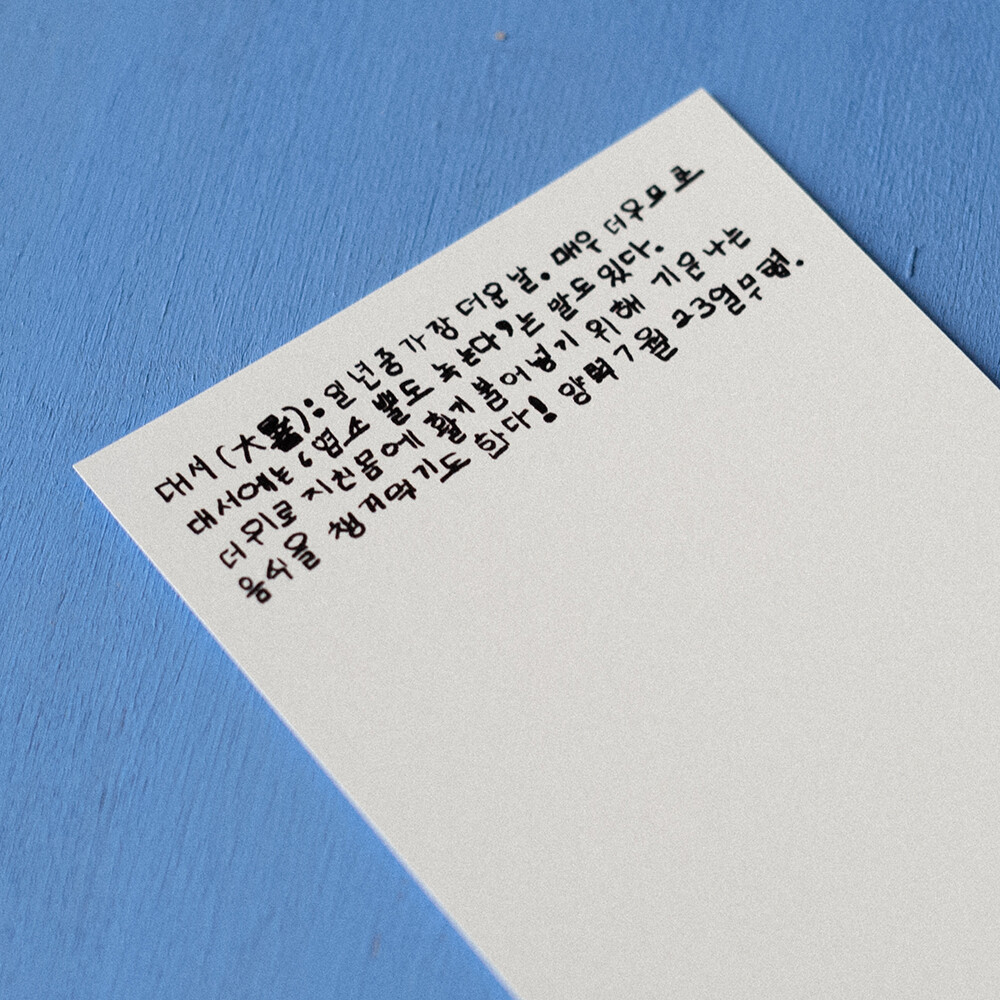 대서(大暑): 일년중가장 더운 날. 매우 더우므로
대서에는 '염소 뿔도 녹는다'는 말도 있다.
더위로 지친몸에 활기 불어넣기 위해 기운 나는
음식을 챙겨먹기도 한다! 양력 7월 23일무렵.